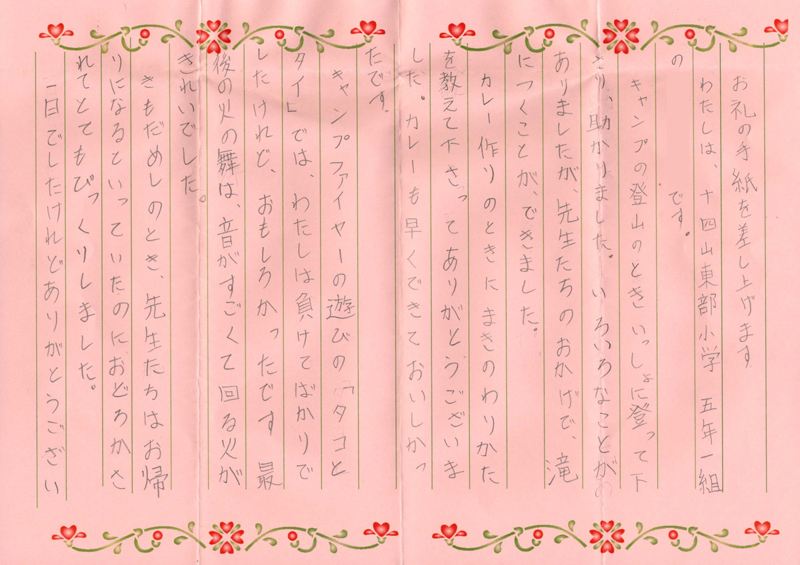 お礼の手紙を差し上げます
わたしは、十四山東部小学　五年一組
の　　　　　です。
キャンプの登山のとき いっしょに登って下
さり、助かりました。いろいろなことが
ありましたが、先生たちのおかげで、滝
につくことが、できました。
カレー作りのときに まきのわりかた
を教えて下さってありがとうございま
した。カレーも早くできておいしかっ
たです。
キャンプファイヤーの遊びの「タコと
タイ」では、わたしは負けてばかりで
したけれど、おもしろかったです 最
後の火の舞は、音がすごくて回る火が
きれいでした。
きもだめしのとき、先生たちはお帰
りになるといっていたのにおどろかさ
れてとてもびっくりしました。
一日でしたけれどありがとうござい